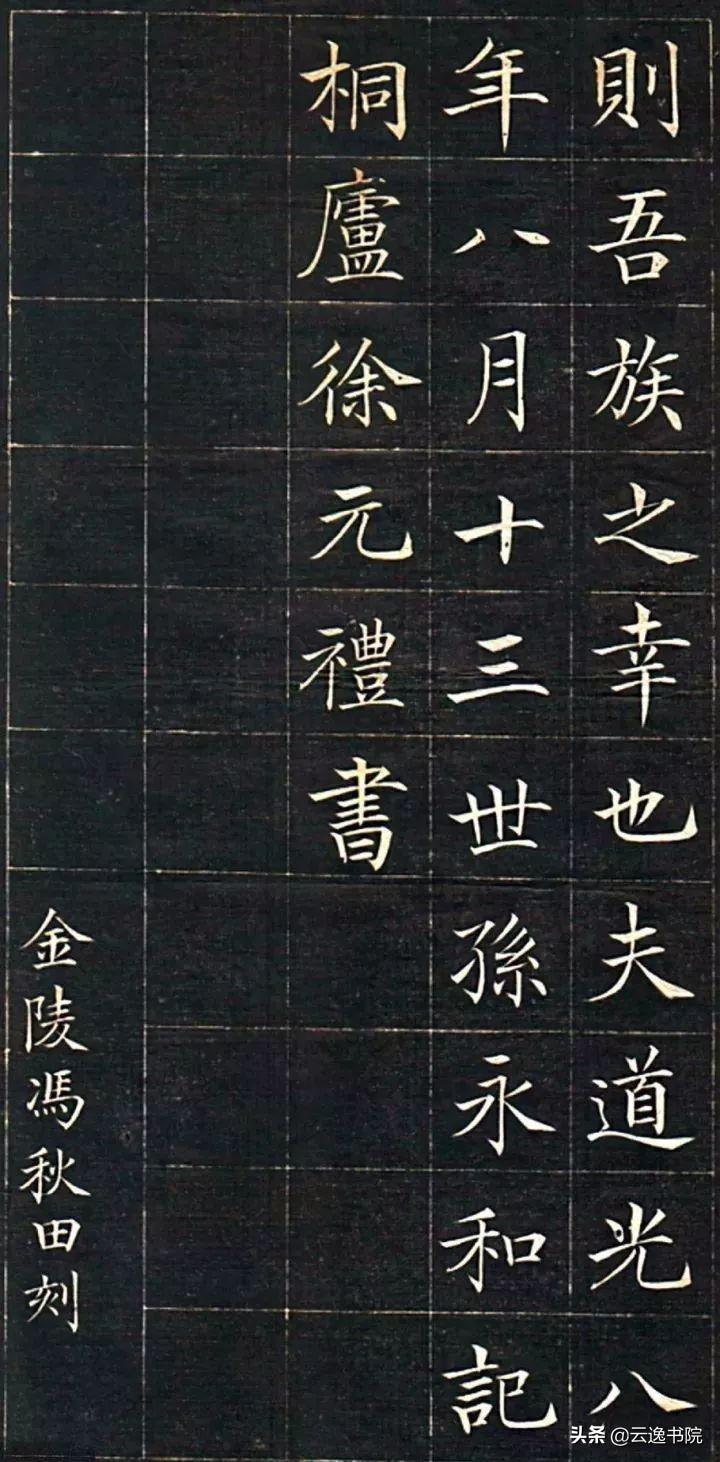 則吾族之幸也夫道光八
年八月十三世孫永和記
桐廬徐元禮書
金陵馮秋田刻
头条 @云逸书院